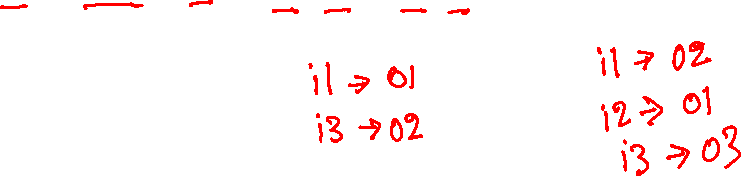 i1 → 01
i3 → 02
i1 → 02
i2 → 01
i3 → 03